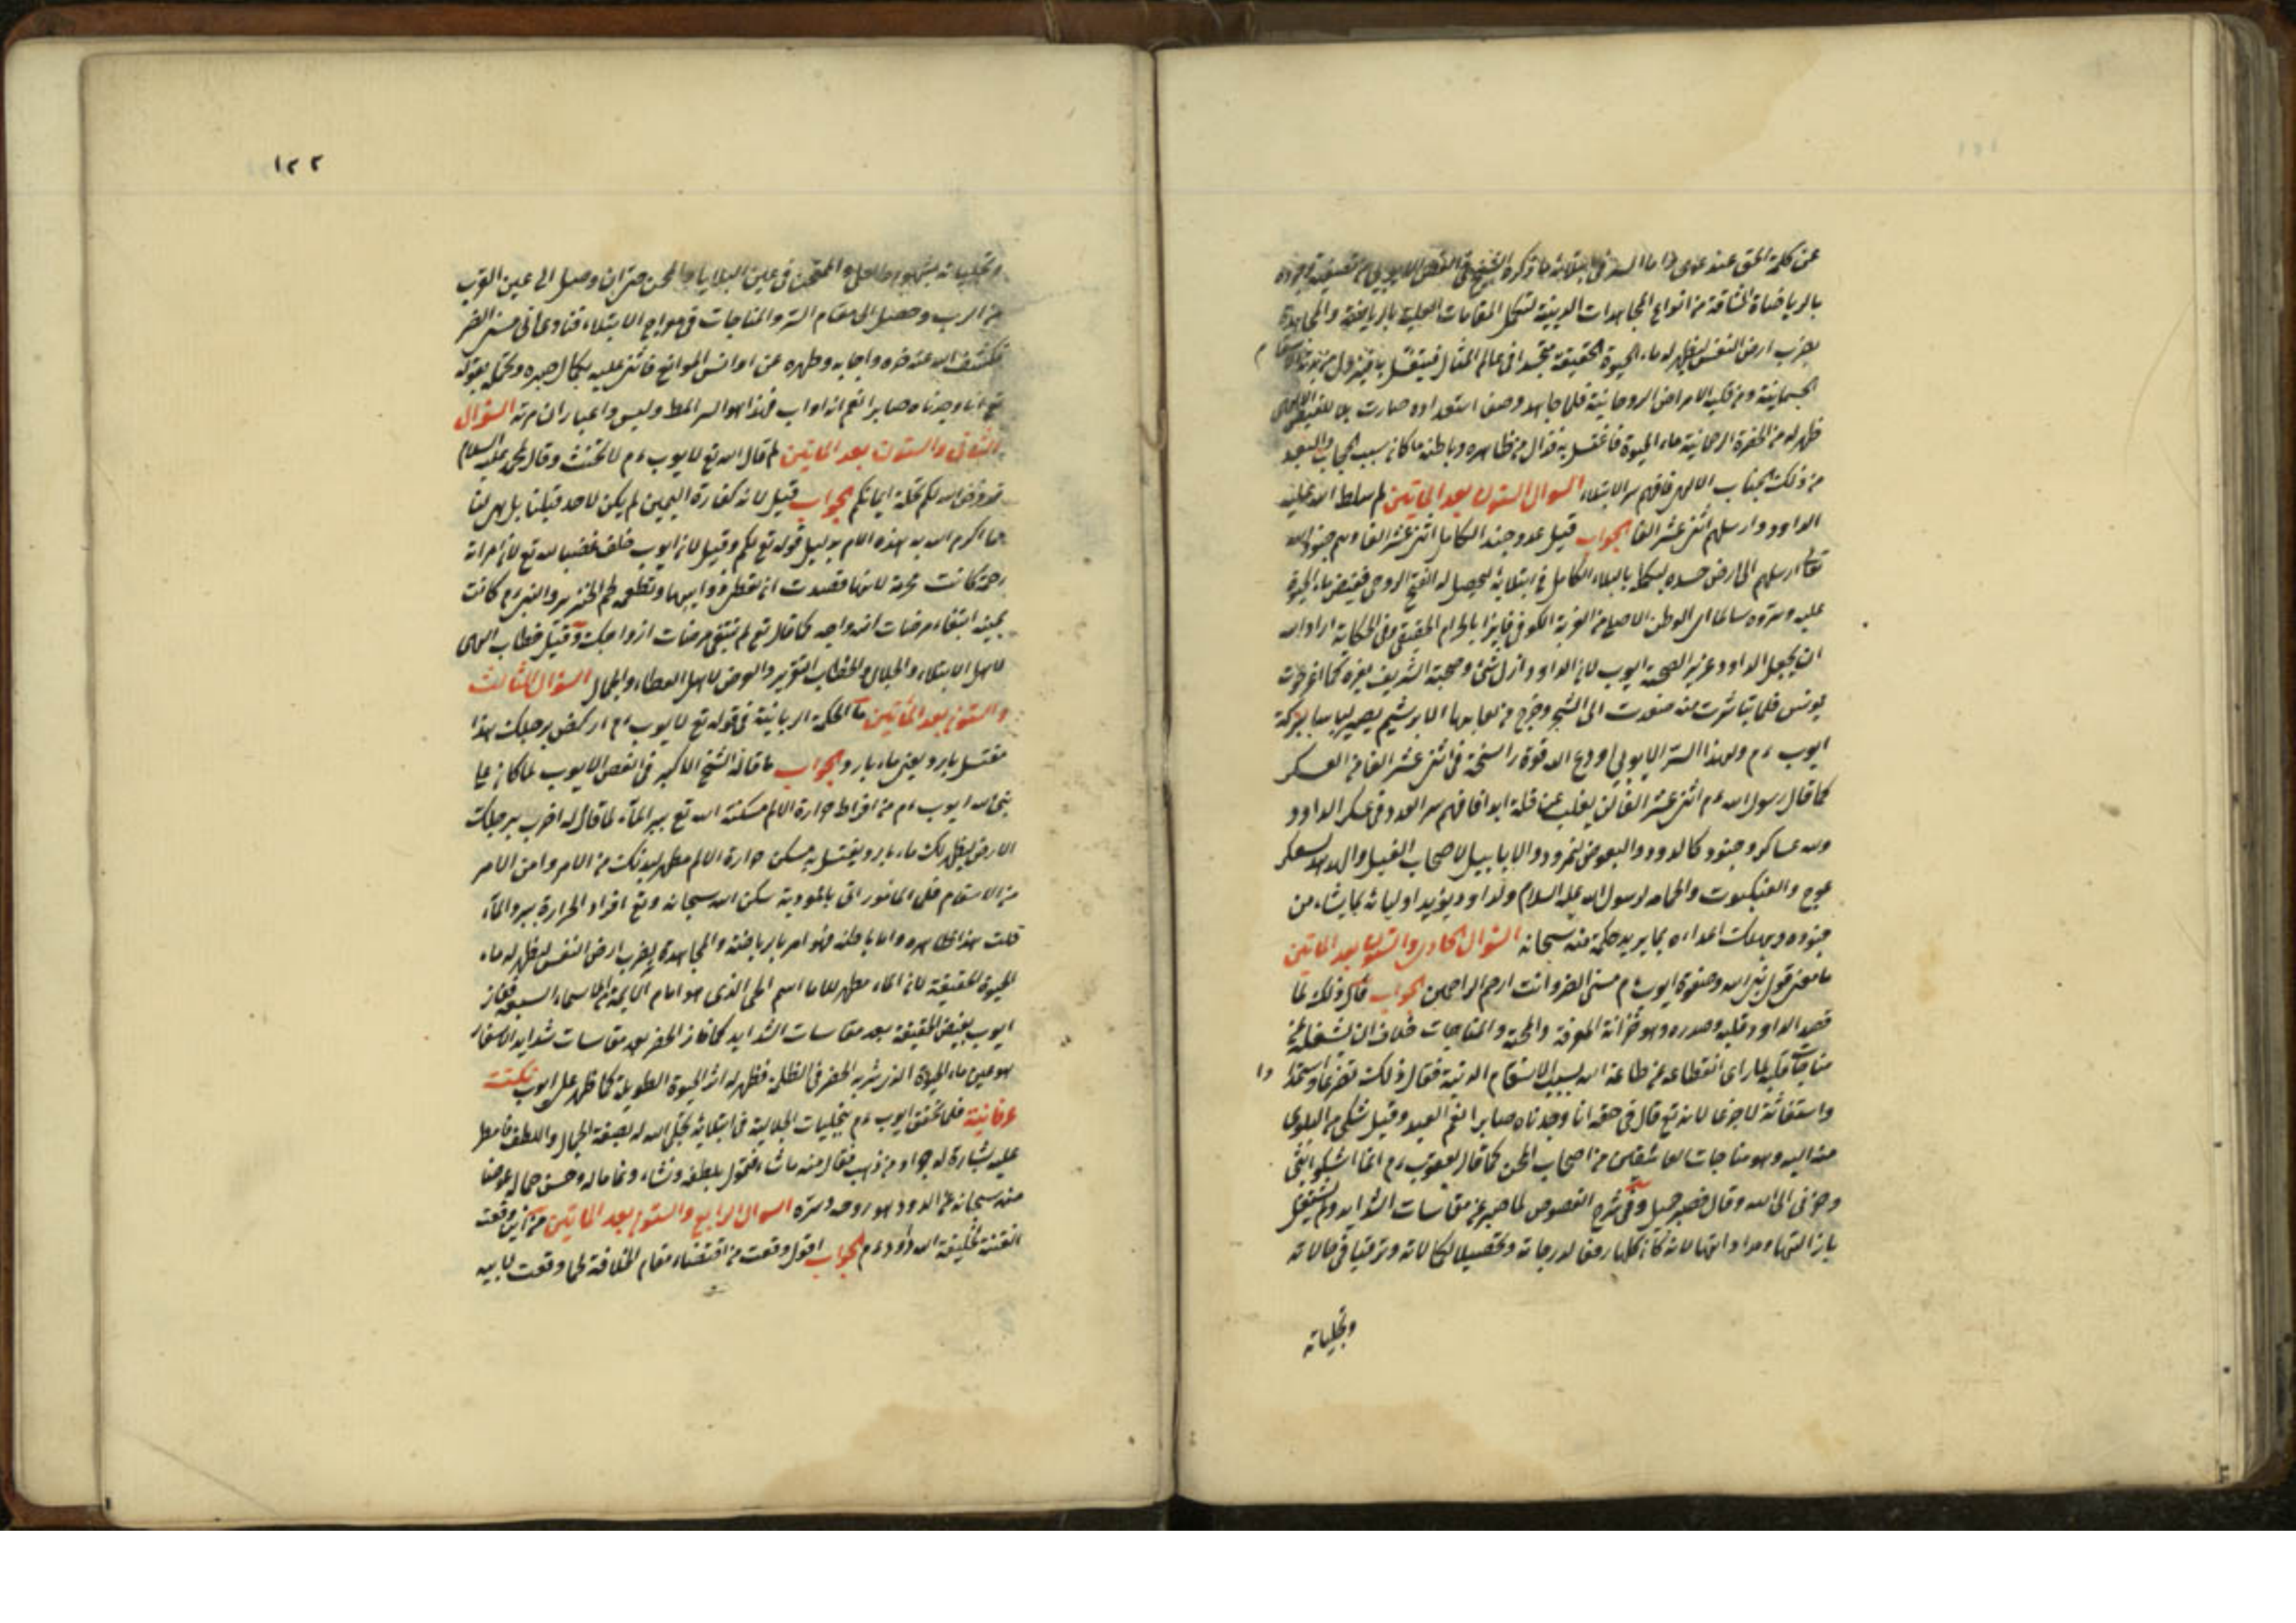 عن كلمة الحق عند عوى واما السر فى ابتلائه ما ذكره الشيخ فى الفص الايوبى من تصفية وجوده
بالرياضات الشاقة من انواع المجاهدات الدينية لتكمل المقامات العلية بالرياضة والمجاهدة
بضرب ارض النفس ليظهر له ماء الحيوة الحقيقة متجسدا فى عالم المثال فيغتسل به فيزول من بدنه الاسقام
الجسمانية ومن قلبه الامراض الروحانية فلما جاهد وصفى استعداده صارت للفيض الالهى
ظهر له من الحضرة الرحمانية ماء الحيوة فاغتسل به فزال من ظاهره وباطنه ما كان سبب الحجاب والبعد
من ذلك الجناب الالهى فافهم سر الابتلاء السؤال الستون بعد المأتين لم سلط الله عليه
الداود وارسلهم اثنى عشر الفا الجواب قيل عدد جند الكامل اثنى عشر الفا وهم جنود الله
تعالى ارسلهم الى ارض جسده ليكمله بالبلاء الكامل فى ابتلائه ليحصل له الفتح الروحى فيفيض ماء الحيوة
عليه وتردوه سالما الى الوطن الاصلى من الغربة الكونى فايزا بالمرام الحقيقى وفى الحكاية اراد الله
ان يجعل الداود عزيزا لصحبة ايوب لان الداود ارذل شئ وصحبة الشريف يعزه كما اعز حوت
يونس فلما تناثرت منه صعدت الى الشجر وخرج من لعابها الابريشم ليصير لباسا ببركة
ايوب ءم ولهذا السر الايوبى اودع الله قوة راسخة فى اثنى عشر الفا من العسكر
كما قال رسول الله ءم اثنى عشر الفا لن يغلب عن قلة ابدا فافهم سر العدد فى عسكر الداود
ولله عساكر وجنود كالدود والبعوض لنمرود والابابيل لاصحاب الفيل والهدهد لعسكر
عوج والعنكبوت والحمامه لرسول الله عليه السلام ولداود ويؤيد اوليائه بما يشاء من
جنوده ويهلك اعداءه بما يريد حكمة منه سبحانه السؤال الحادى والستون بعد المأتين
ما معنى قول نبى الله وصفوة ايوب ءم مسنى الضر وانت ارحم الراحمين الجواب قال ذلك لما
قصد الداود قلبه وصدره وهو خزانة المعرفة والمحبة والمناجات فخاف ان تشغله عن
مناجات قلبه لما راى انقطاعه عن طاعة الله بسبب الاسقام البدنية فقال ذلك تضرعا واستمدادا
واستغاثة لا جزعا لانه تع قال فى حقه انا وجدناه صابرا نعم العبد وقيل شكى من البلوى
منه اليه وهو مناجات العاشقين من اصحاب المحن كما قال يعقوب ءم انما اشكو بثى
وحزنى الى الله وقال فصبر جميل وفى شرح الفصوص لما صبر عن مقاسات الشدايد ولم يشتغل
بازالتها ومداواتها لانه كان كلها رفعا لدرجاته وتحصيلا لكمالاته وترقيا فى حالاته
وتجلياته
١٢٢
وتجلياته بشهود المبلى والممتحن فى عين البلايا والمحن حتى ان وصل الى عين القرب
من الرب وحصل الى مقام السر والمناجات فى معراج الابتلاء فنادى انى مسنى الضر
فكشف الله عنه ضره واجابه وطهره عن ادناس الموانع فاثنى عليه بكمال صبره وتحمله بقوله
تع انا وجدناه صابرا نعم انه اواب فهذا هو السر المط وليس واعباران مرته السؤال
الثانى والستون بعد المأتين لم قال الله تع لايوب ءم لا تحنث وقال لمحمد عليه السلام
قد فرض الله لكم تحلة ايمانكم الجواب قيل لان كفارة اليمين لم يكن لاحد قبلنا بل هى لنا
مما اكرم الله به هذه الامة بدليل قوله تع لكم وقيل لان ايوب حلف غضبا لله تع لان امراته
رحمة كانت محرمة لانها قصدت ان تقطر ذوايبها وتطعمه لحم الخنزير والنبى ءم كانت
يمينه ابتغاء مرضات ازواجه كما قال تع لم تبتغى مرضات ازواجك وقيل خطاب المحلى
لاهل الابتلاء والجلال والخطاب التقرير والعوض لاهل العطاء والجمال السؤال الثالث
والستون بعد المأتين ما الحكمة الربانية فى قوله تع لايوب ءم اركض برجلك هذا
مغتسل بارد يعنى ماء بارد الجواب ما قاله الشيخ الاكبر فى الفص الايوب لما كان على
نبى الله ايوب ءم من افراط حرارة الالم سكنه الله تع ببرد الماء لما قال له اضرب برجلك
الارض ليظهر لك ماء بارد يغتسل به فيسكن حرارة الالم مطهر لبدنك من الامر وامن الامر
من الاسقام فلما اتى بالمأمورية سكن الله سبحانه وتع افراد الحرارة ببرد الماء
قلت هذا ظاهره واما باطنه فهو امر بالرياضة والمجاهدة بضرب ارض النفس ليظهر له ماء
الحيوة الحقيقة لان الماء مظهر للعلم اسم الحى الذى هو امام الايمة من الاسماء السبعة ففاز
ايوب بفيض الحقيقة بعد مقاسات الشدايد كما فاز الخضر بعد مقاسات شدايد الاسفار
هو عين ماء الحيوة الذى شربه الخضر فى الظلمة فظهر له اثر الحيوة الطويلة كما ظهر على ايوب نكتة
عرفانية فلما تحقق ايوب ءم بتجليات الجلالية فى ابتلائه تجلى الله له بصفة الجمال واللطف فامطر
عليه بشارة له جراد من ذهب فقال منه ما شاء فتحول بلطفه ونشاء ونما ماله وحسن حماله عوضا
منه سبحانه عن الدود هو روحه وسره السؤال الرابع والستون بعد المأتين من اين وقعت
الفتنة لخليفة الله داود ءم الجواب اقول وقعت من اقتضاء مقام الخلافة لما وقعت لابيه